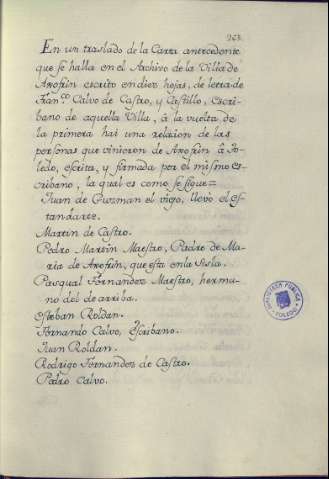 268.
En un traslado de la Carta antecedente
que se halla en el Archivo de la Villa de
Axofrin escrito en diez hojas, de letra de
Fran.co Calvo de Castro, y Castillo, Escri-
bano de aquella Villa, â la vuelta de
la primera hai una relacion de las
personas que vinieron de Axofrin â To-
ledo, escrita, y firmada por el mismo es-
cribano, la qual es como se sigue=
Juan de Guzman el viejo, llevo el es-
tandarte.
Martin de Castro.
Pedro Martin Maestro, Padre de Ma-
ria de Axofrin, que esta en la Sisla.
Pasqual Fernandez Maestro, herma-
no del de arriba.
Esteban Roldan.
Fernando Calvo, Escribano.
Juan Roldan.
Rodrigo Fernandez de Castro.
Pedro Calvo.
BIBLIOTECA PUBLICA
TOLEDO